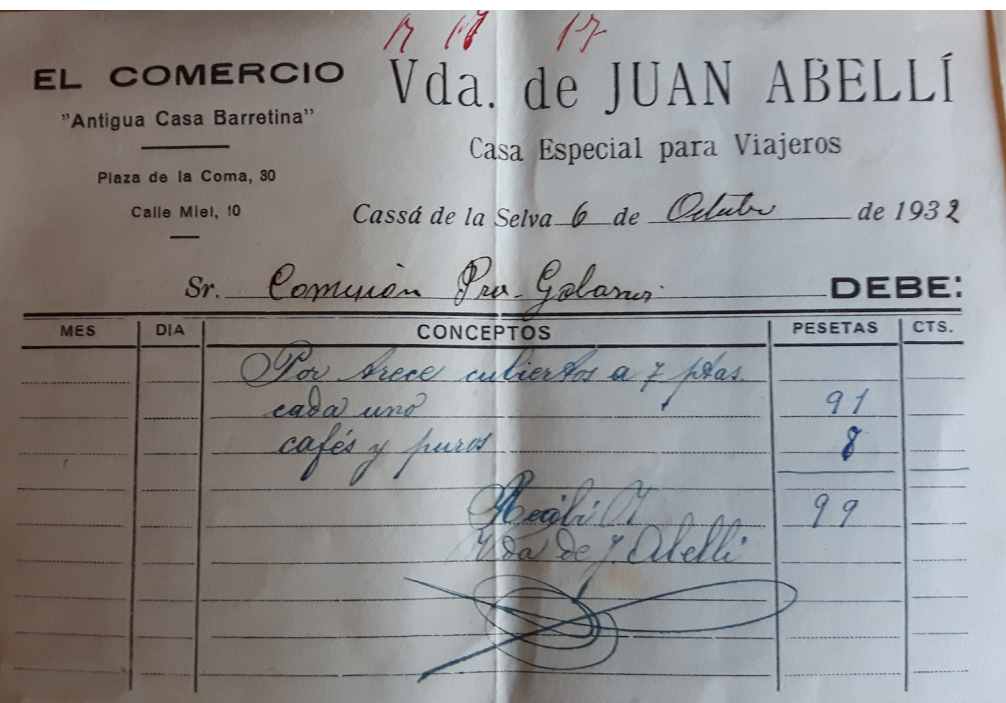 17
EL COMERCIO
"Antigua Casa Barretina"
Plaza de la Coma, 30
Calle Miel, 10
Vda. de JUAN ABELLÍ
Casa Especial para Viajeros
Cassá de la Selva 6 de Octubre de 1932
Sr. Comisión Pro- DEBE:
MES DIA CONCEPTOS PESETAS CTS.
Por trece cubiertos a 7 ptas.
cada uno 91
cafés y puros 8
Recibí 99
Vda de J. Abelli